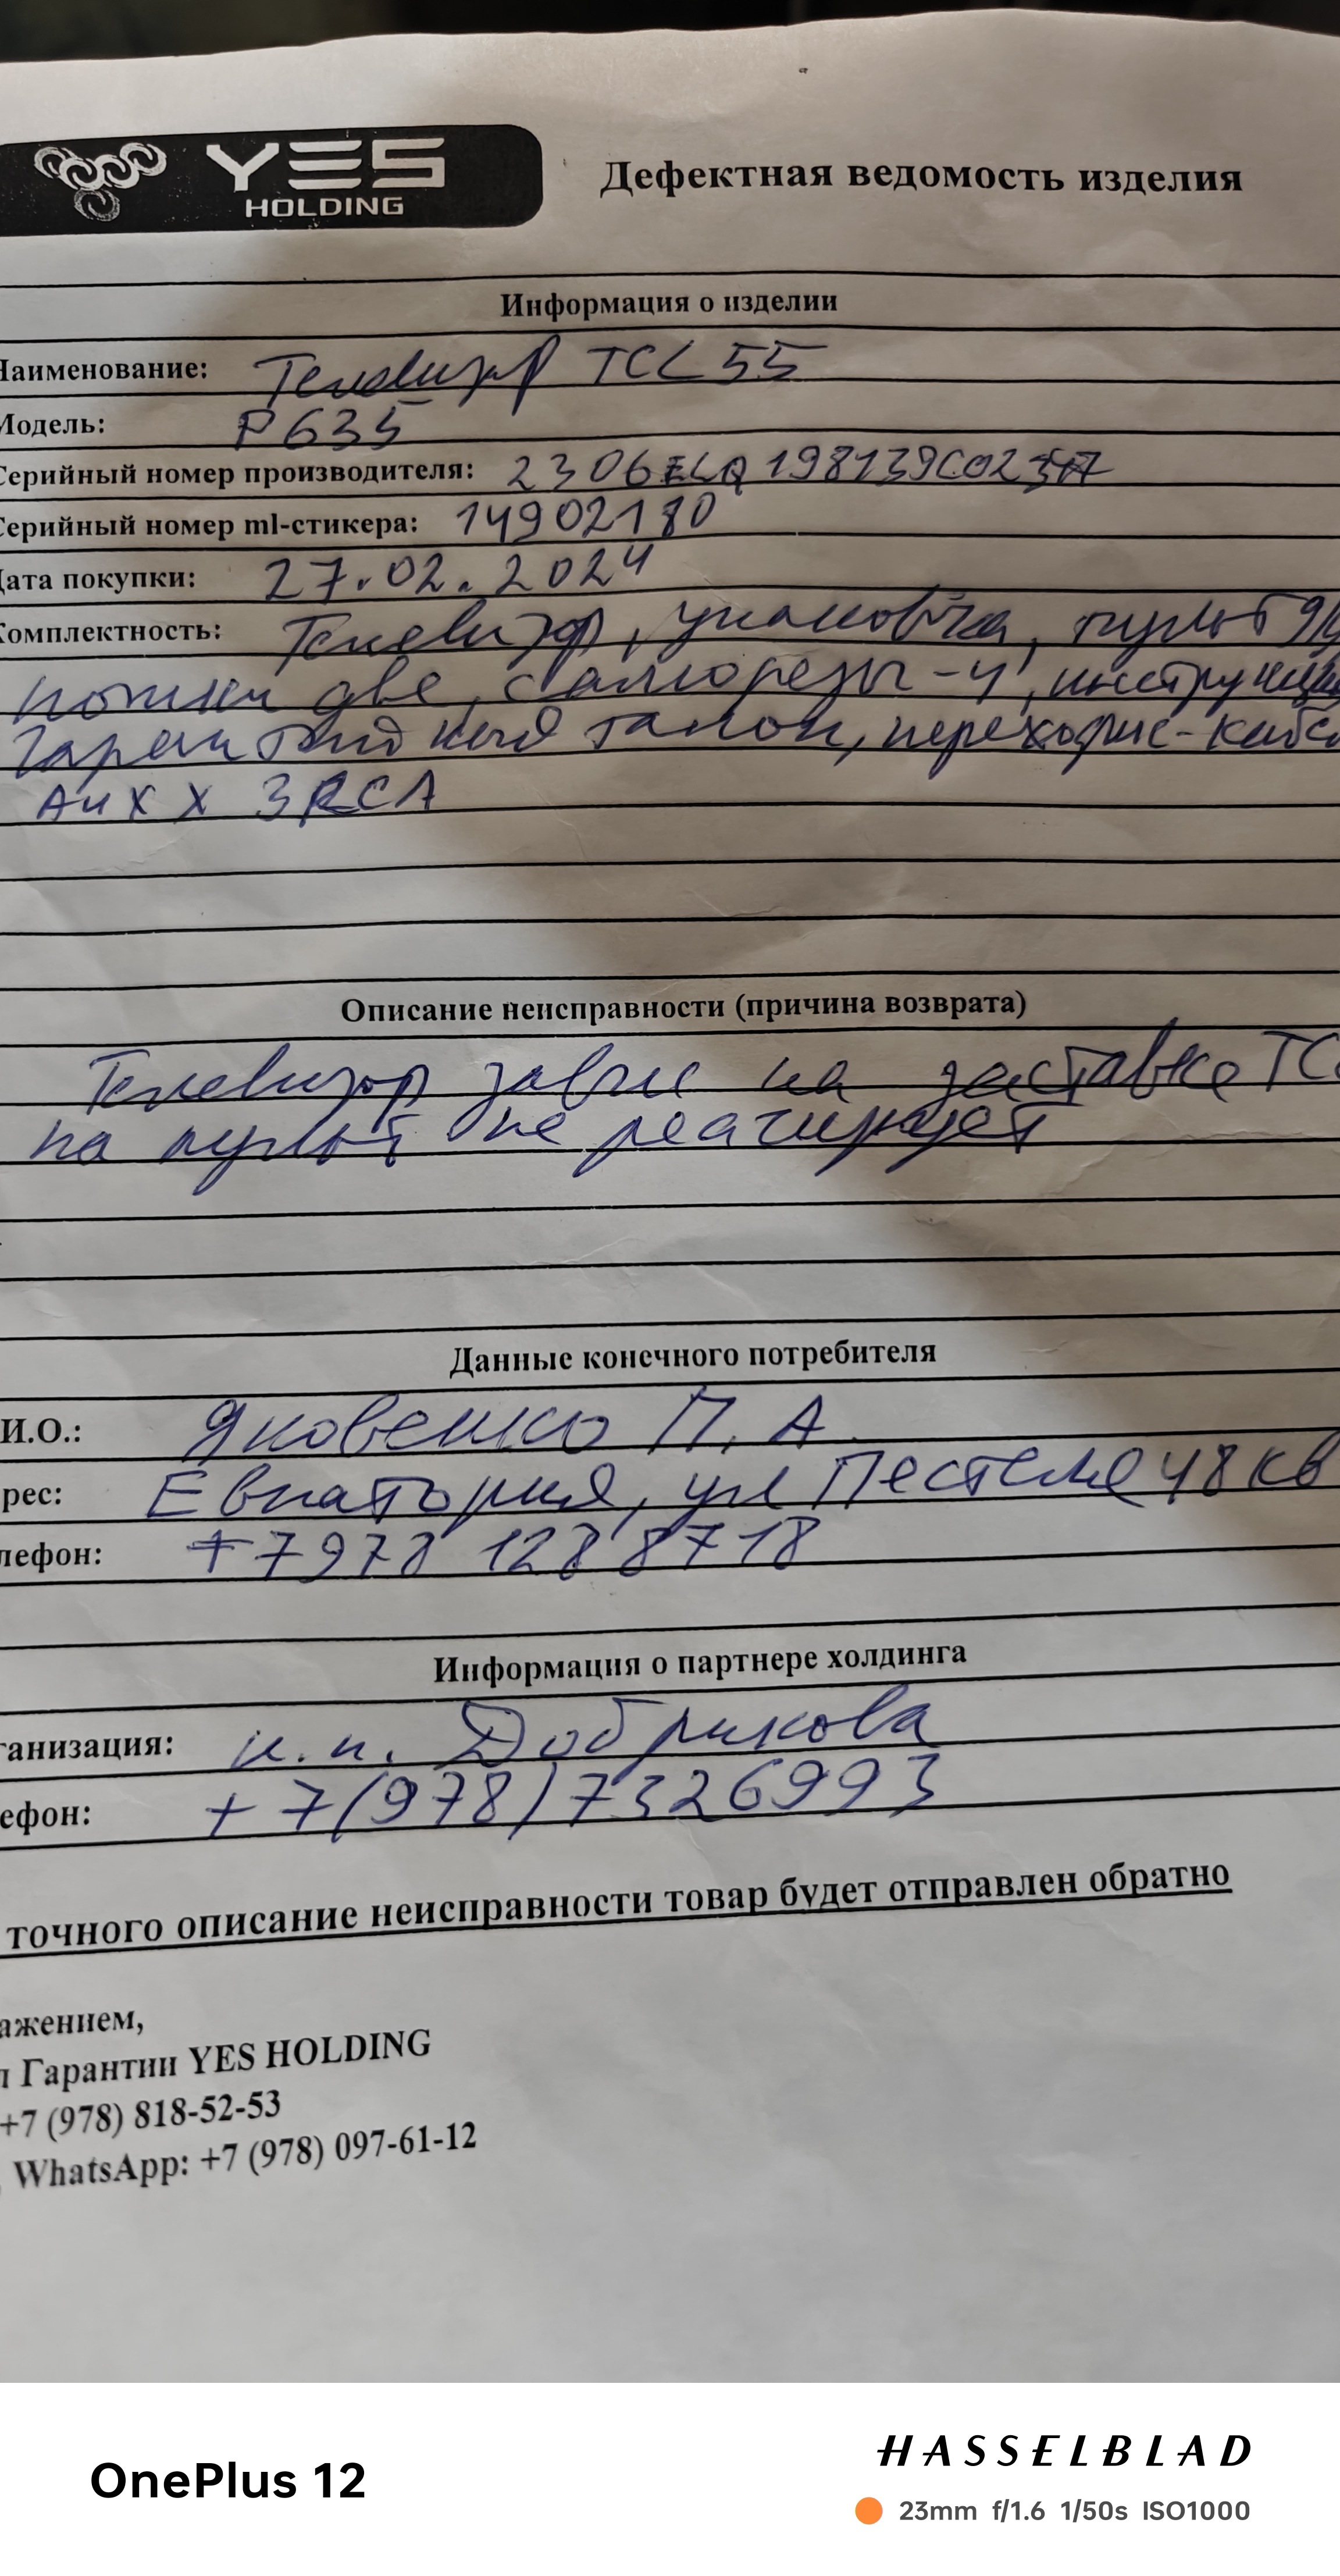 YES
HOLDING
Дефектная ведомость изделия
Информация о изделии
Наименование: Телевизор TCL 55
Модель: P635
Серийный номер производителя:
Серийный номер ml-стикера: 14902180
Дата покупки: 27.02.2024
Комплектность: Телевизор, упаковка, пульт ду
ножки две, саморезы-4, инструкция
гарантийный талон, переходник-каб
3RCA
Описание неисправности (причина возврата)
Телевизор завис на заставке TC
на пульт не реагирует
Данные конечного потребителя
И.О.: Яковенко П. А.
рес: Евпатория, ул Пестеля 48 кв
лефон: +7978 128 8718
Информация о партнере холдинга
ганизация: и.п. Добрикова
ефон: +7(978)7326993
точного описание неисправности товар будет отправлен обратно
ажением,
л Гарантии YES HOLDING
+7 (978) 818-52-53
WhatsApp: +7 (978) 097-61-12
OnePlus 12
HASSELBLAD
23mm f/1.6 1/50s ISO1000